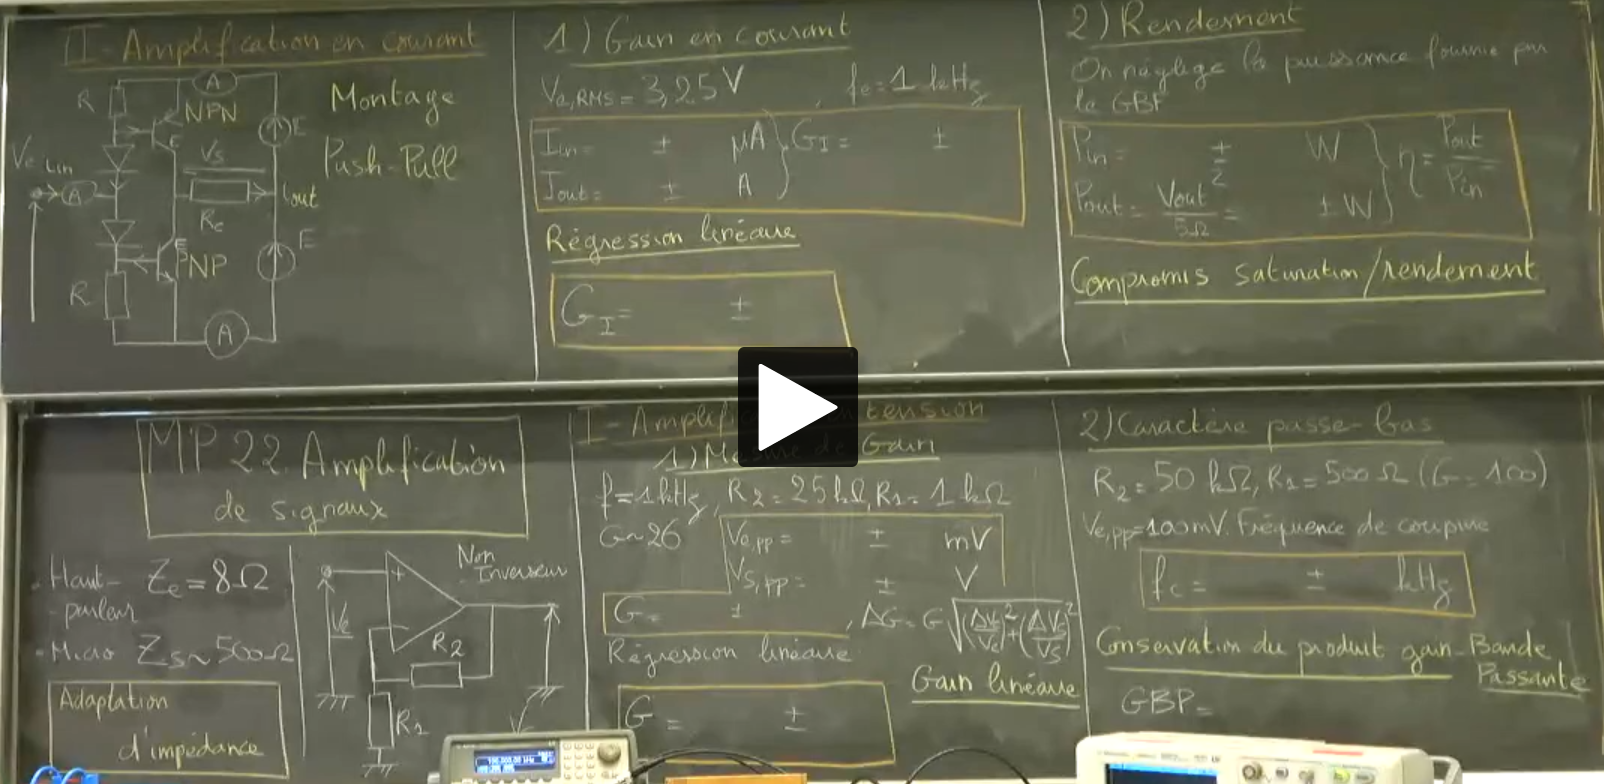 II - Amplification en courant
Montage
Push-Pull
A
R
NPN
E
E
Ve
Iin
A
Vs
Iout
Rc
E
PNP
E
R
A
1) Gain en courant
Ve,RMS = 3,25 V , fe = 1 kHz
Iin = ± μA } GI = ±
Iout = ± A
Régression linéaire
GI = ±
2) Rendement
On néglige la puissance fournie par
le GBF
Pin = ± W } η = Pout/Pin
Pout = Vout/5Ω = ± W
Compromis saturation/rendement
MP 22. Amplification
de signaux
- Haut-parleur Ze = 8Ω
- Micro Zs ~ 500Ω
Adaptation
d'impédance
Non
Inverseur
+
-
Ve
R2
R1
I - Amplification tension
1) Mesure de Gain
f = 1 kHz, R2 = 25 kΩ, R1 = 1 kΩ
G ~ 26
Ve,pp = ± mV
Vs,pp = ± V
G = ± , ΔG = G √((ΔVe/Ve)² + (ΔVs/Vs)²)
Régression linéaire
Gain linéaire
G = ±
2) Caractère passe-bas
R2 = 50 kΩ, R1 = 500 Ω (G = 100)
Ve,pp = 100 mV. Fréquence de coupure
fc = ± kHz
Conservation du produit gain-Bande
Passante
GBP =